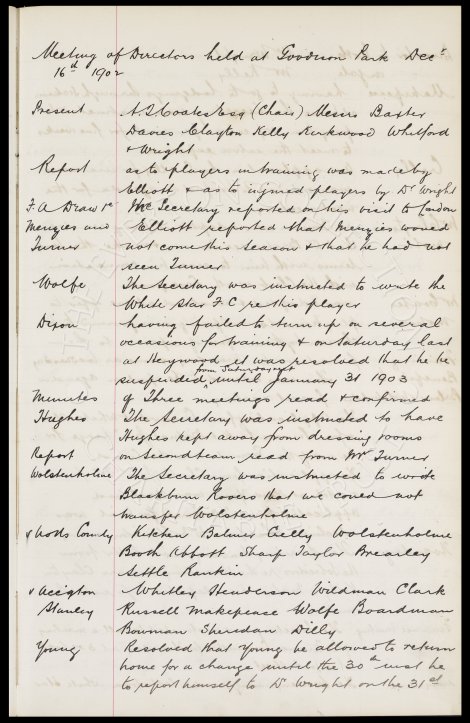 Meeting of Directors held at Goodison Park Decr
16th 1902
Present A R Coates Esq (Chair) Messrs Baxter
Davies Clayton Kelly Kirkwood Whitford
& Wright
Report as to players in training was made by
Elliott & as to injured players by Dr Wright
F.A Draw re Mr Secretary reported on his visit to London
Menzies and Elliott reported that Menzies would
Turner not come this season & that he had not
seen Turner
Wolfe The Secretary was instructed to write the
White Star F C re this player
Dixon having failed to turn up on several
occasions for training & on Saturday last
at Heywood it was resolved that he be
from Saturday next
suspended, until January 31 1903
Minutes of Three meetings read & confirmed
Hughes The Secretary was instructed to have
Hughes kept away from dressing rooms
Report on Second team read from Mr Turner
Wolstenholme The Secretary was instructed to write
Blackburn Rovers that we could not
transfer Wolstenholme
v Notts County Kitchen Balmer Crelly Wolstenholme
Booth Abbott Sharp Taylor Brearley
Settle Rankin
v Accigton Whitley Henderson Wildman Clark
Stanley Russell Makepeace Wolfe Boardman
Bowman Sheridan Dilly
Young Resolved that Young be allowed to return
home for a change until the 30th inst he
to report himself to Dr Wright on the 31st